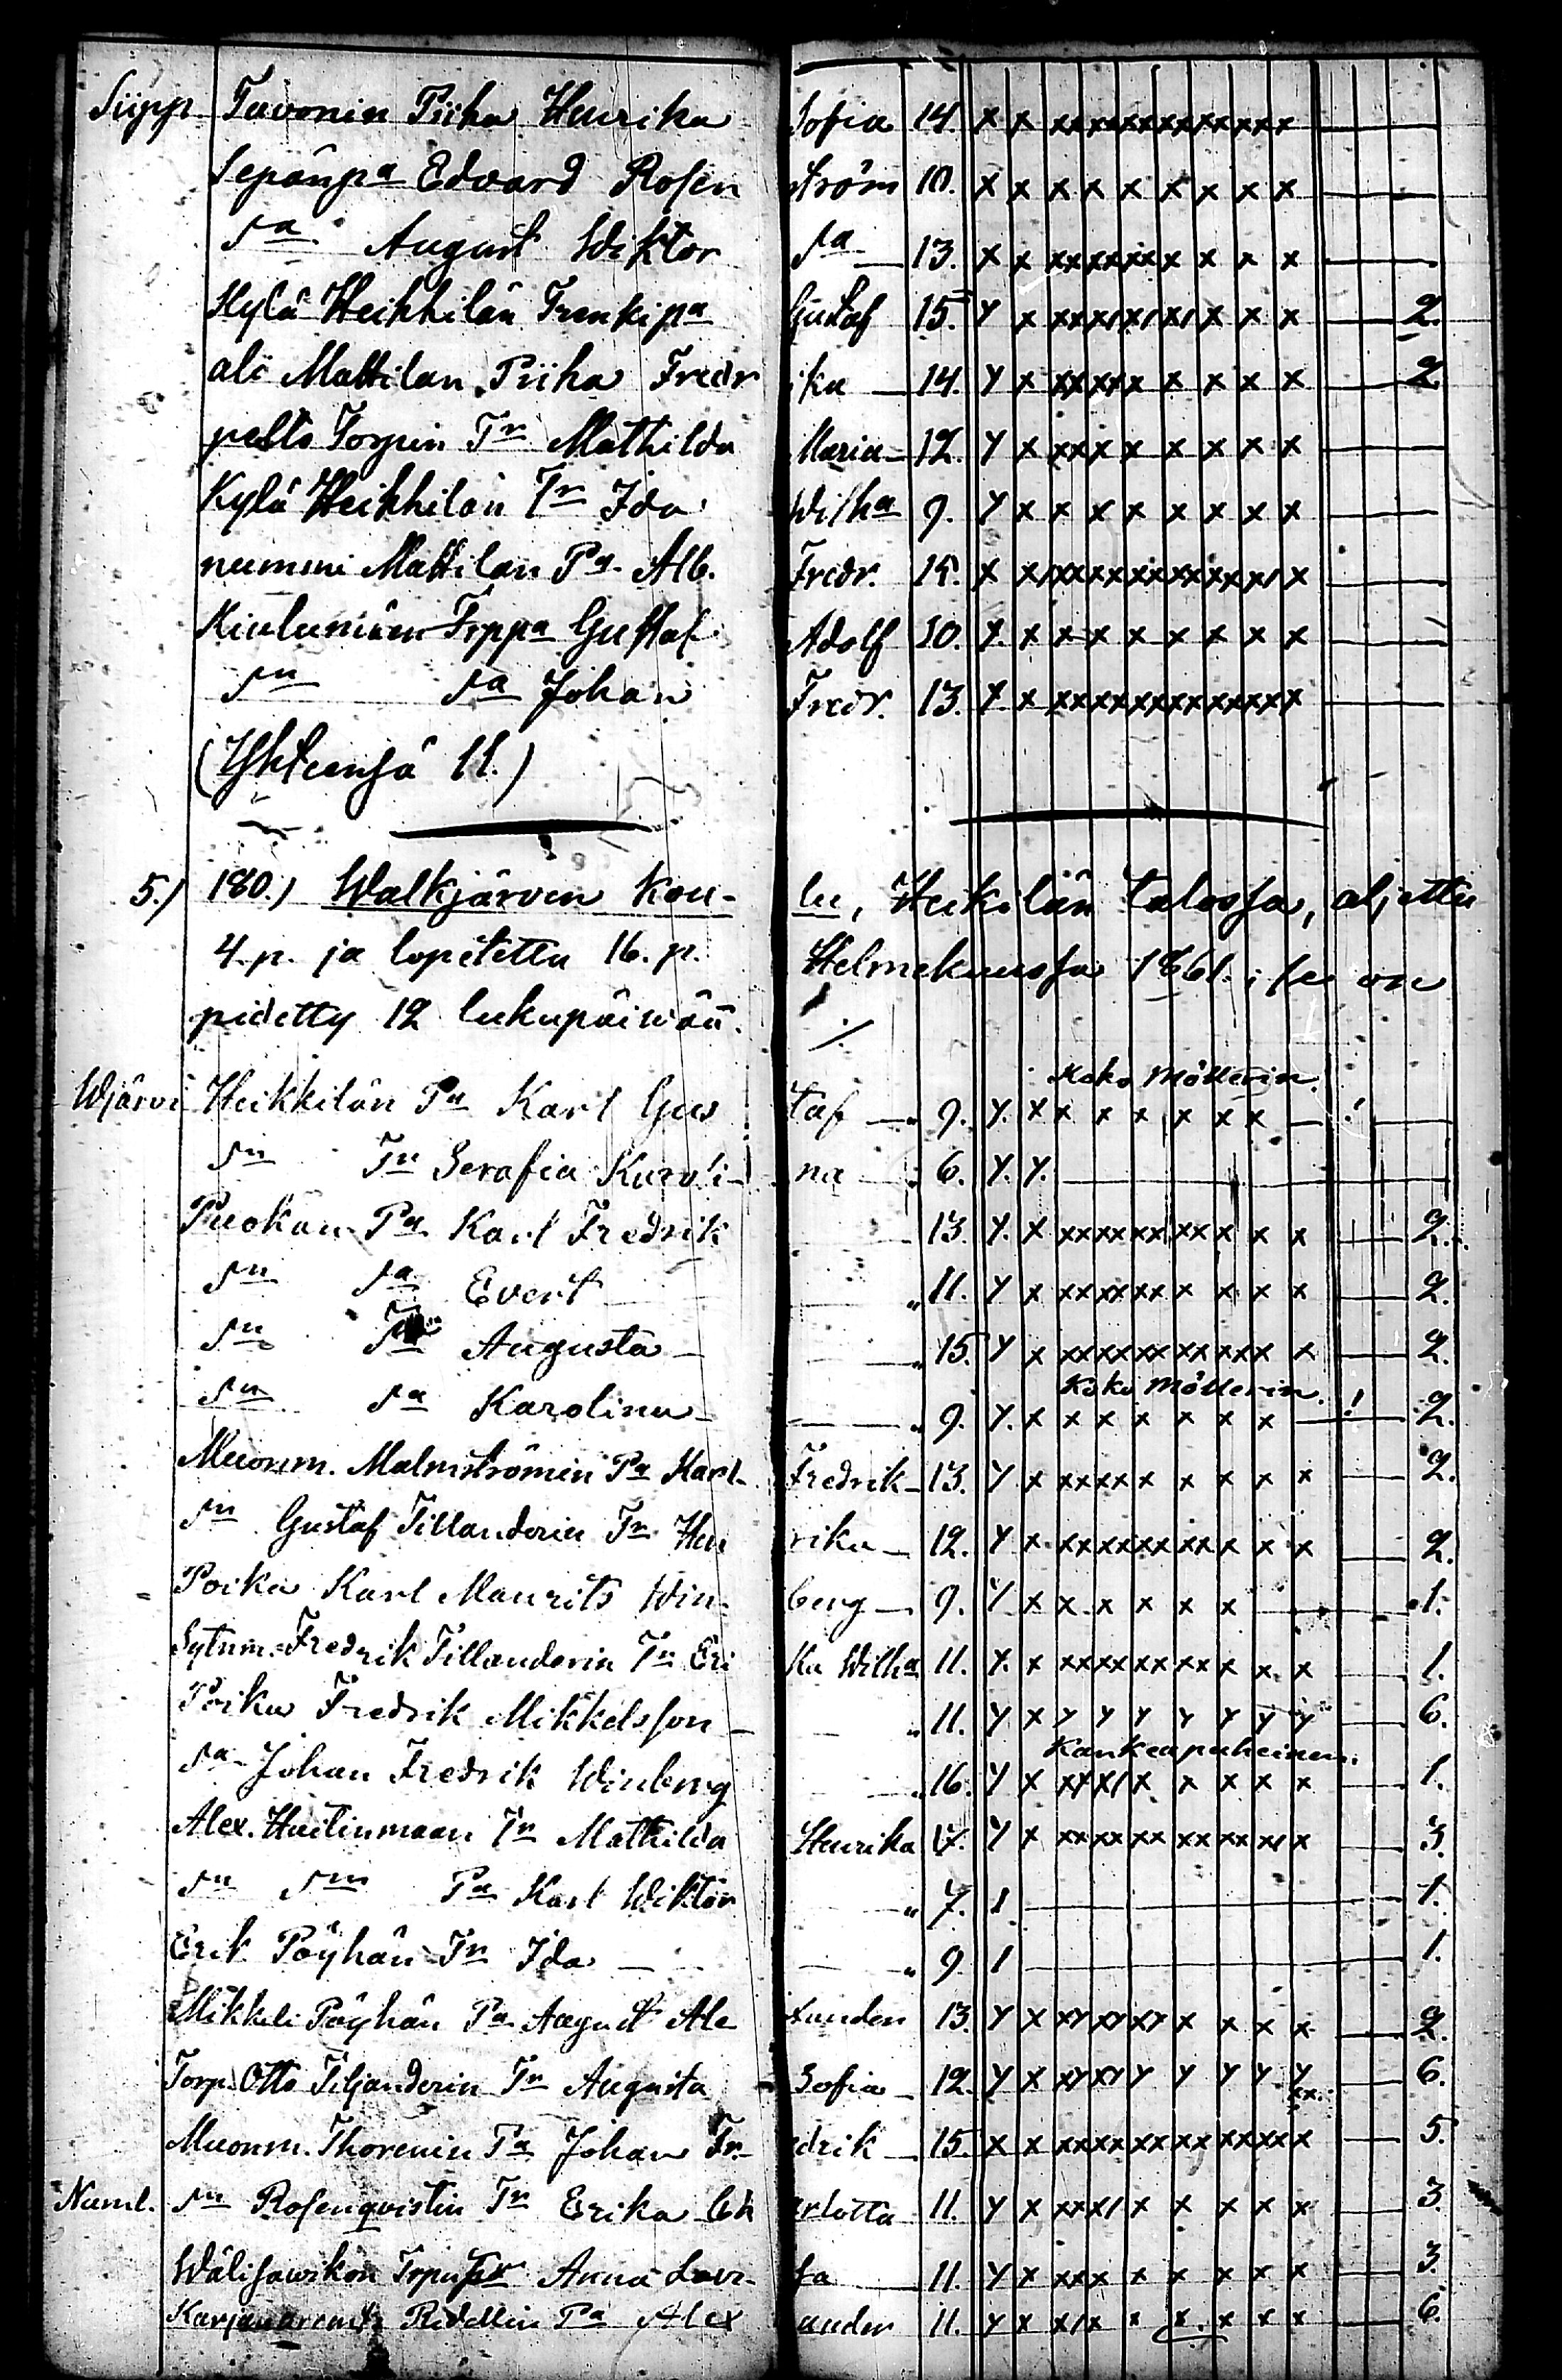 Siipp. Tavonin Piika Henrika Sofia 14. x x xx xx xx xx xx xx xx
Sepänpa Edvard Rosenström 10. x x x x x x x x x
sa August Wiktor sa 13. x x xx xx xx x x x x
Kylä Heikkilän Trenkipa Gustaf 15. y x xx x/ x/ x/ x x x 2.
ali Mattilan Piika Fredrika 14. y x xx xx x x x x x 2
pelto Torpin Tr Mathilda Maria 12. y x xx x x x x x x
Kylä Heikkilän Tr Ida Wilha 9. y x x x x x x x x
nummi Mattilan Pa Alb. Fredr. 15. x x/ xx xx xx xx xx x/ x
Kiulumäen Trppa Gustaf Adolf 10. y. x x x x x x x x
sn sa Johan Fredr. 13. y x xx xx xx xx xx xx xx
(Yhteensä 11.)
5.) 180.) Walkjärven Koulu, Heikilän talossa, aljettu
4. p. ja lopitettu 16. p. Helmekuussa 1861. ; se on
pidetty 12 lukupäiwää. ./.
Koko Mötterin.
Wjärvi Heikkilän Pa Karl Gustaf 9. y. x x x x x x x !
sn Tr Serafia Karolina 6. y. y.
Puokan Pa Karl Fredrik 13. y. x xx xx xx xx x x x 2.
sn sa Evert " 11. y x xx xx xx x x x x 2.
sn Tr Augusta " 15. y x xx xx xx xx xx x x 2.
Koko Mötterin.
sn sa Karolina " 9. y. x x x x x x x ! 2.
Muonm. Malmströmin Pa Karl Fredrik 13. y x xx xx x x x x x 2.
sn Gustaf Tillanderin Tr Henrika 12. y x xx xx xx xx x x x 2.
Poika Karl Maurits Winberg 9. y x x x x x x 1.
Sytnm. Fredrik Tillanderin Tr Erika Wilha 11. y. x xx xx xx xx x x x 1.
Poika Fredrik Mikkelsson " 11. y x y y y y y y y 6.
Kankeapuheinen.
sa Johan Fredrik Winberg " 16. y x xx x/ x x x x x 1.
Alex. Huitinmaan Tr Mathilda Henrika 17. y x xx xx xx xx xx x/ x 3.
sn sm Pa Karl Wiktor " 7. 1 1.
Erik Pöyhän Tr Ida " 9. 1 1.
Mikkeli Pöyhän Pa August Alexander 13. y x xy xy xy x x x x 2.
Torp. Otto Tiljanderin Tr Augusta Sofia 12. y x xy xy y y y y y 6.
Muonm. Thorenin Pa Johan Fredrik 15. x x xx xx xx xx xx xx x 5.
Numl. sn Rosenqvistin Tr Erika Charlotta 11. y x xx x/ x x x x x 3.
Wälisawikon Trpn Tr Anna Lovisa 11. y x xx x x x x x x 3.
Ridellin Pa Alexander 11. y x x/ x x x x x x 6.